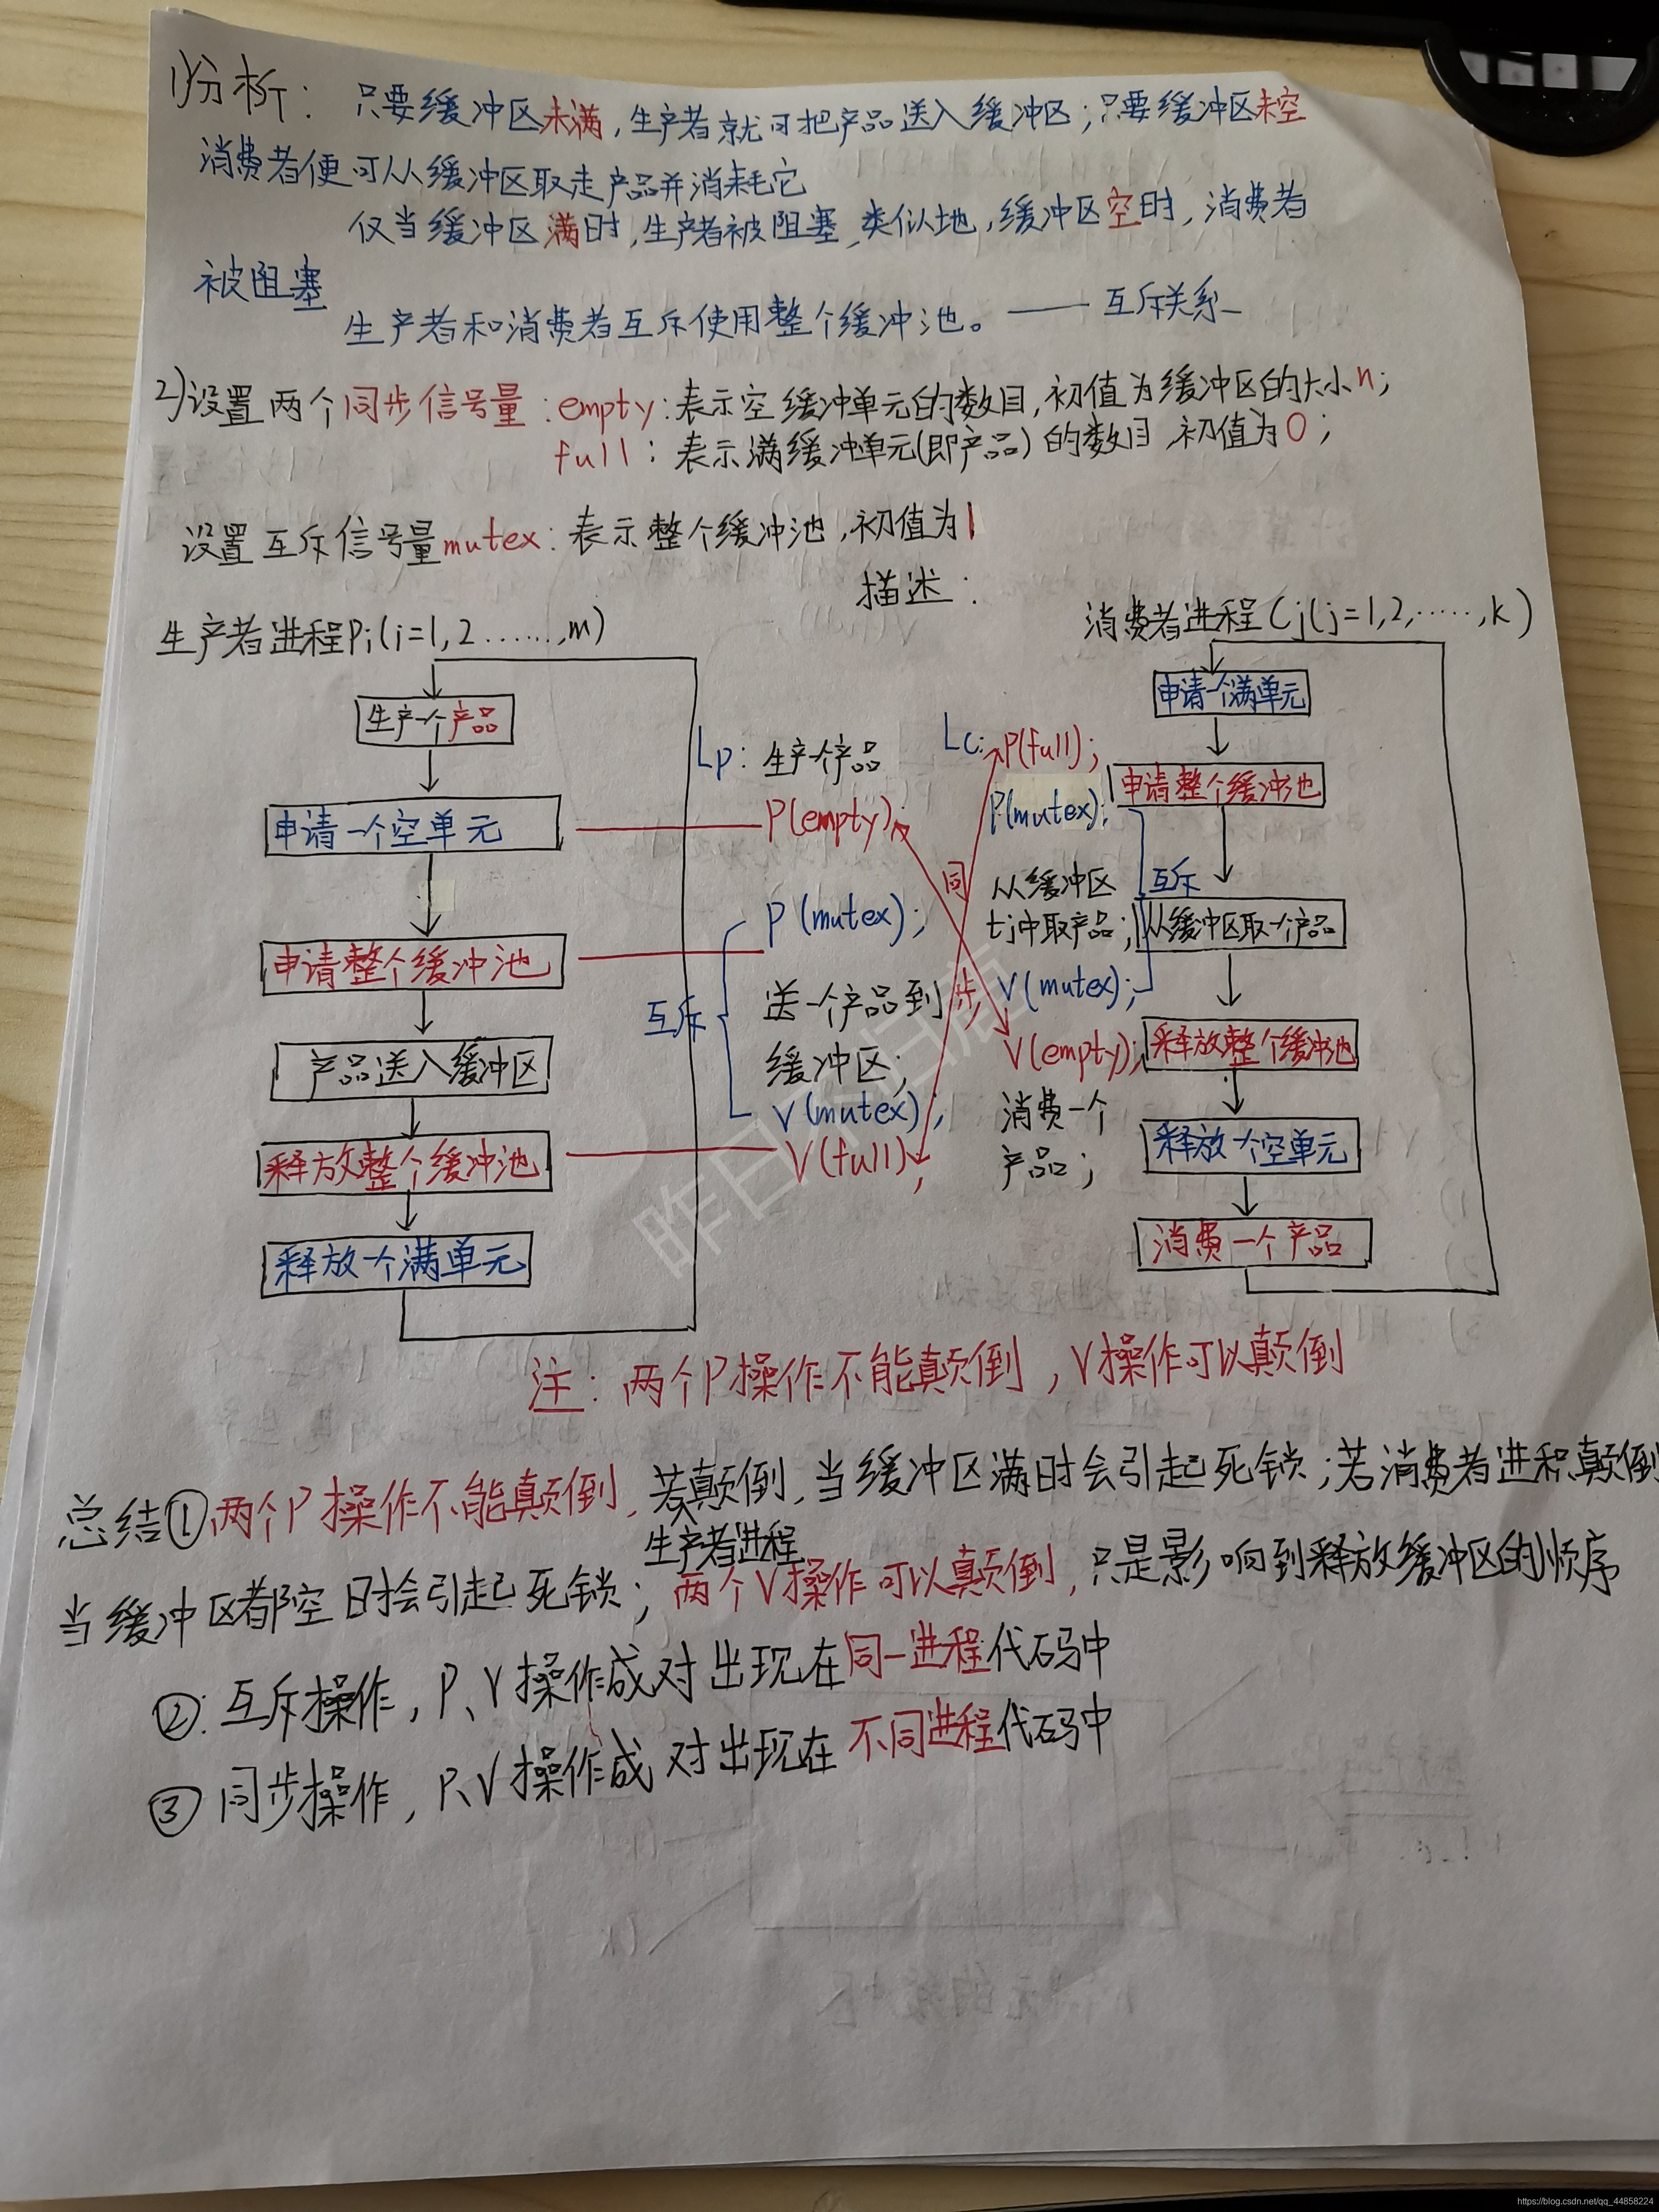 1)分析：只要缓冲区未满，生产者就可把产品送入缓冲区；只要缓冲区未空
消费者便可从缓冲区取走产品并消耗它
仅当缓冲区满时，生产者被阻塞，类似地，缓冲区空时，消费者
被阻塞
生产者和消费者互斥使用整个缓冲池。——互斥关系
2)设置两个同步信号量：empty：表示空缓冲单元的数目，初值为缓冲区的大小n；
full：表示满缓冲单元(即产品)的数目，初值为0；
设置互斥信号量mutex：表示整个缓冲池，初值为1
描述：
生产者进程Pi(i=1,2......,m)
生产一个产品
申请一个空单元
申请整个缓冲池
产品送入缓冲区
释放整个缓冲池
释放个满单元
Lp：生产个产品
P(empty);
P(mutex);
送一个产品到
缓冲区；
V(mutex);
V(full);
互斥
同
步
消费者进程Cj(j=1,2,……,k)
Lc: P(full);
P(mutex);
从缓冲区
tj中取产品；
V(mutex);
V(empty);
消费一个
产品；
互斥
申请一个满单元
申请整个缓冲池
从缓冲区取一个产品
释放整个缓冲池
释放个空单元
消费一个产品
注：两个P操作不能颠倒，V操作可以颠倒
总结①两个P操作不能颠倒，若颠倒，当缓冲区满时会引起死锁；若消费者进程颠倒
生产者进程
当缓冲区都空时会引起死锁；两个V操作可以颠倒，只是影响到释放缓冲区的顺序
②：互斥操作，P、V操作成对出现在同一进程代码中
③同步操作，P、V操作成对出现在不同进程代码中
https://blog.csdn.net/qq_44858224